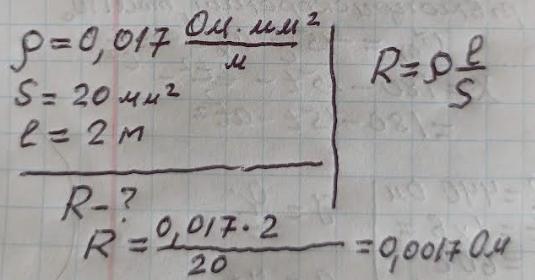 ρ = 0,017 Ом·мм²/м
S = 20 мм²
l = 2 м
R = ρ l/S
R - ?
R = 0,017·2/20 = 0,0017 Ом